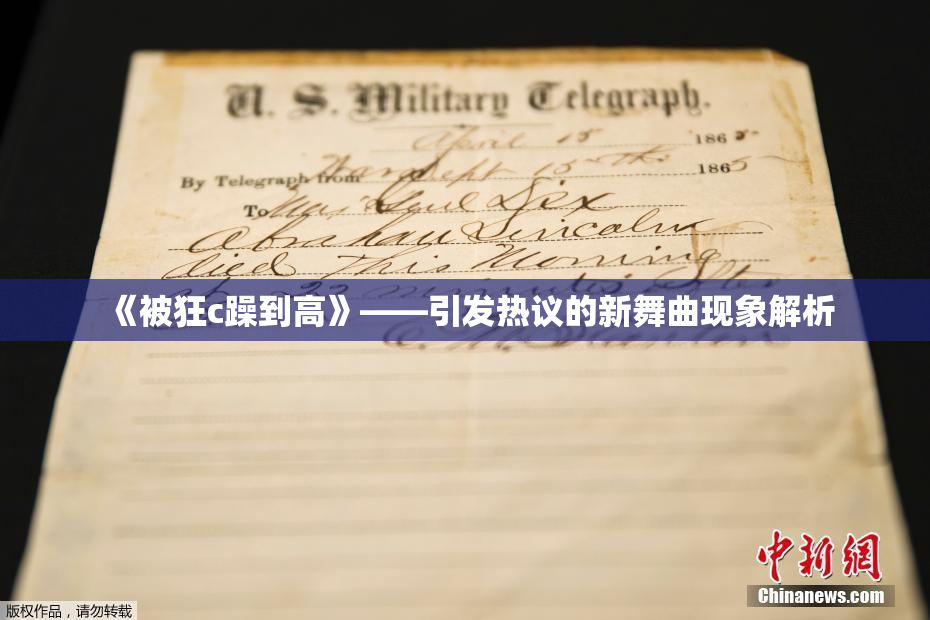 U. S. Military Telegraph.
April 15 1865
By Telegraph from War Dept 15th 1865
To Maj Genl Dix
Abraham Lincoln
died This Morning
22 minutes after
《被狂c躁到高》——引发热议的新舞曲现象解析
中新网
Chinanews.com
版权作品，请勿转载